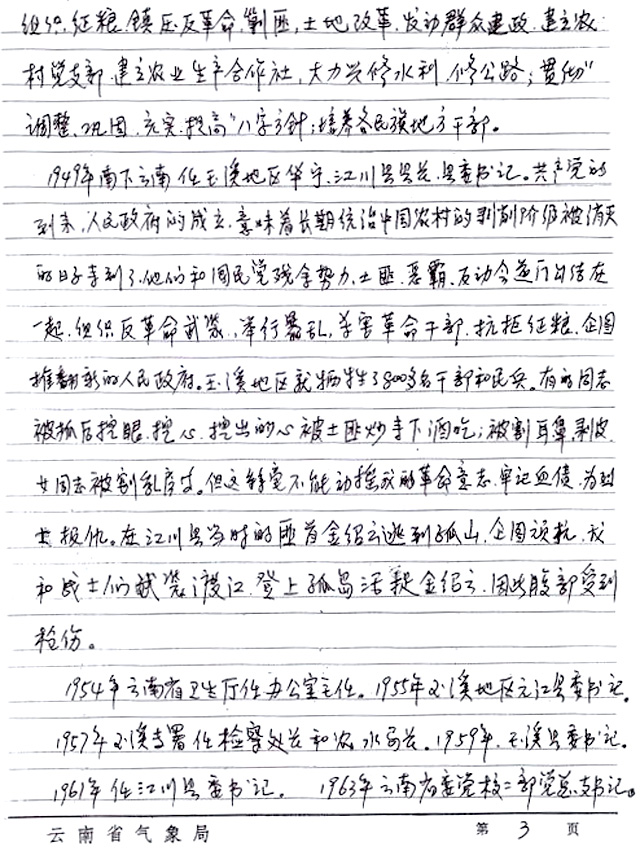 组织.征粮.镇压反革命.剿匪,土地改革.发动群众建政.建立农
村党支部.建立农业生产合作社,大力兴修水利.修公路;贯彻"
调整.巩固.充实.提高"八字方针;培养各民族地方干部。
1949年南下云南任玉溪地区华宁、江川县县长.县委书记。共产党的
到来,人民政府的成立.意味着长期统治中国农村的剥削阶级被消灭
的日子来到了.他们和国民党残余势力.土匪.恶霸.反动会道门勾结在
一起.组织反革命武装.举行暴乱,杀害革命干部.抗拒征粮.企图
推翻新的人民政府。玉溪地区就牺牲了800多名干部和民兵。有的同志
被抓后挖眼.挖心.挖出的心被土匪炒来下酒吃;被割耳鼻.剥皮.
女同志被割乳房等。但这丝毫不能动摇我的革命意志.牢记血债.为烈
士报仇。在江川县当时的匪首金绍云逃到孤山.企图顽抗.我
和战士们武装渡江.登上孤岛活捉金绍云.因此腹部受到
枪伤。
1954年云南省卫生厅任办公室主任。1955年玉溪地区元江县委书记.
1957年玉溪专署任检察处长和农水局长。1959年.玉溪县委书记.
1961年任江川县委书记。 1963年云南省委党校二部党总支书记。
云南省气象局 第 3 页